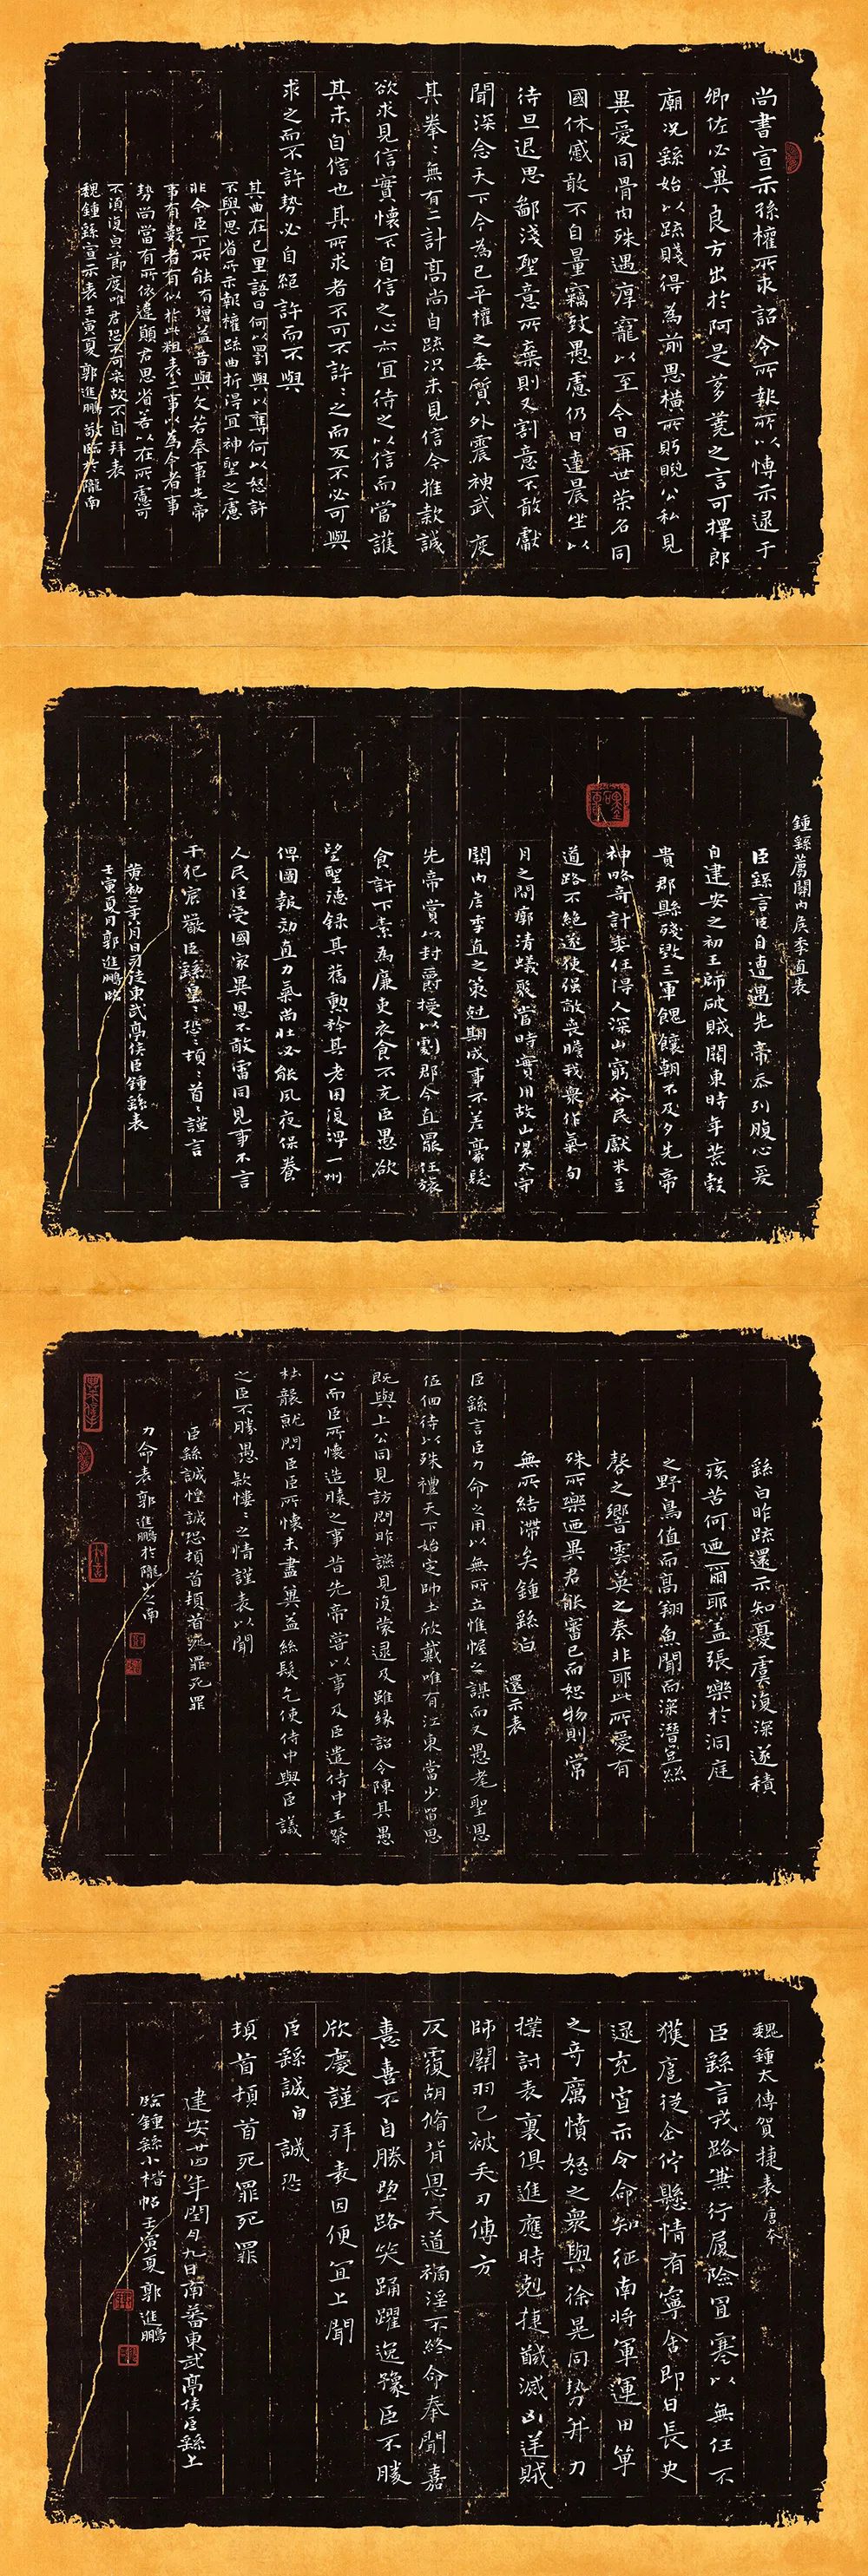 尚書宣示孫權所求詔令所報所以博示逮于
卿佐必冀良方出於阿是芻蕘之言可擇郎
廟況繇始以疏賤得為前恩橫所眄睨公私見
異愛同骨肉殊遇厚寵以至今日再世榮名同
國休慼敢不自量竊致愚慮仍日達晨坐以
待旦退思鄙淺聖意所棄則又割意不敢獻
聞深念天下今為已平權之委質外震神武度
其拳〻無有二計高尚自疏況未見信今推款誠
欲求見信實懷不自信之心亦宜待之以信而當護
其未自信也其所求者不可不許〻之而反不必可與
求之而不許勢必自絕許而不與
其曲在己里語曰何以罰與以奪何以怒許
不與思省所示報權疏曲折得宜神聖之慮
非今臣下所能有增益昔與文若奉事先帝
事有數者有似於此粗表二事以為今者事
勢尚當有所依違願君思省若以在所慮可
不須復自節度唯君恐不可采故不自拜表
魏鍾繇宣示表壬寅夏郭進鵬敬臨於隴南
鍾繇薦關內侯季直表
臣繇言臣自遭遇先帝忝列腹心爰
自建安之初王師破賊關東時年荒穀
貴郡縣殘毀三軍餽饟朝不及夕先帝
神略奇計委任得人深山窮谷民獻米豆
道路不絕遂使強敵喪膽我眾作氣旬
月之間廓清蟻聚當時實用故山陽太守
關內侯季直之策剋期成事不差豪髮
先帝賞以封爵授以劇郡今直罷任旅
食許下素為廉吏衣食不充臣愚欲
望聖德錄其舊勳矜其老困復俾一州
俾圖報效直力氣尚壯必能夙夜保養
人民臣受國家異恩不敢雷同見事不言
干犯宸嚴臣繇皇〻恐〻頓〻首〻謹言
黃初二年八月日司徒東武亭侯臣鍾繇表
壬寅夏月郭進鵬臨
繇白昨疏還示知憂虞復深遂積
疾苦何迺爾耶蓋張樂於洞庭
之野鳥值而高翔魚聞而深潛豈絲
磬之響雲英之奏非耶此所愛有
殊所樂迺異君能審己而恕物則常
無所結滯矣鍾繇白 還示表
臣繇言臣力命之用以無所立惟幄之謀而又愚耄聖恩
低徊待以殊禮天下始定師士欣戴唯有江東當少留思
既與上公同見訪問昨讌見復蒙逮及雖緣詔令陳其愚
心而臣所懷造膝之事昔先帝嘗以事及臣遣侍中王粲
杜襲就問臣臣所懷未盡冀益絲髮乞使侍中與臣議
之臣不勝愚款慺〻之情謹表以聞
臣繇誠惶誠恐頓首頓首死罪死罪
力命表郭進鵬於隴山之南
魏鍾太傅賀捷表唐本
臣繇言戎路兼行履險冒寒以無任不
獲扈從企佇懸情有寧舍即日長史
逯充宣示令命知征南將軍運田單
之奇厲憤怒之眾與徐晃同勢并力
撲討表裏俱進應時剋捷馘滅凶逆賊
師關羽已被矢刃傅方
反覆胡脩背恩天道禍淫不終命奉聞嘉
憙喜不自勝望路笑踊躍逸豫臣不勝
欣慶謹拜表因便宜上聞
臣繇誠自誠恐
頓首頓首死罪死罪
建安廿四年閏月九日南蕃東武亭侯臣繇上
臨鍾繇小楷帖壬寅夏郭進鵬